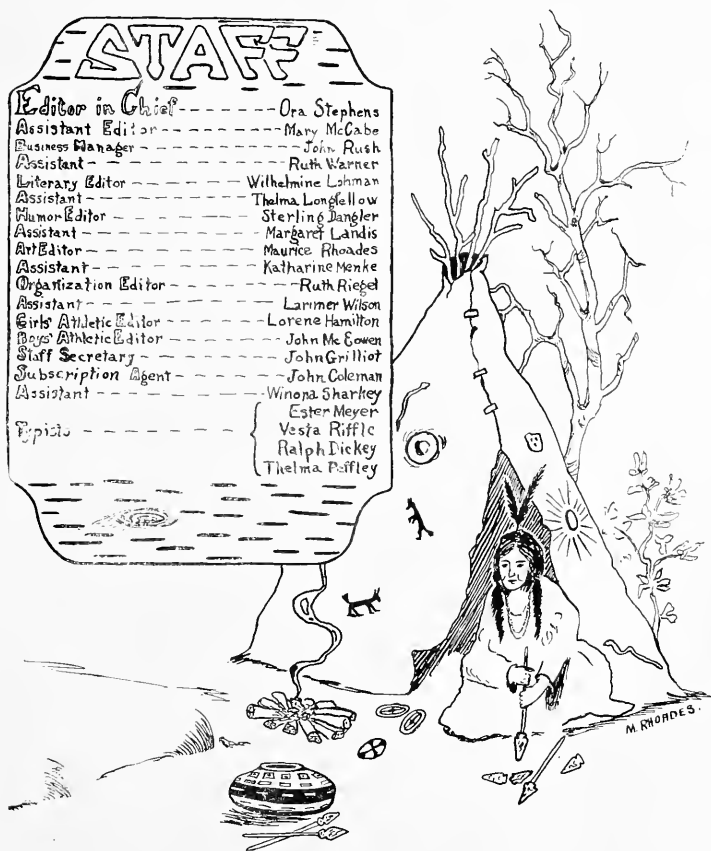 STAFF
Editor in Chief - - - - - - - Ora Stephens
Assistant Editor - - - - - - - - Mary McCabe
Business Manager - - - - - - - - John Rush
Assistant - - - - - - - - - Ruth Warner
Literary Editor - - - - - - Wilhelmine Lohman
Assistant - - - - - - - - Thelma Longfellow
Humor Editor - - - - - - - Sterling Dangler
Assistant - - - - - - - - Margaret Landis
Art Editor - - - - - - - - Maurice Rhoades
Assistant - - - - - - - - Katharine Menke
Organization Editor - - - - - - Ruth Riegel
Assistant - - - - - - - - Larimer Wilson
Girls' Athletic Editor - - - - Lorene Hamilton
Boys' Athletic Editor - - - - John McEowen
Staff Secretary - - - - - - - John Grilliot
Subscription Agent - - - - - - John Coleman
Assistant - - - - - - - - Winona Sharkey
Ester Meyer
Typists - - - - - - Vesta Riffle
Ralph Dickey
Thelma Peffley
M. RHOADES.